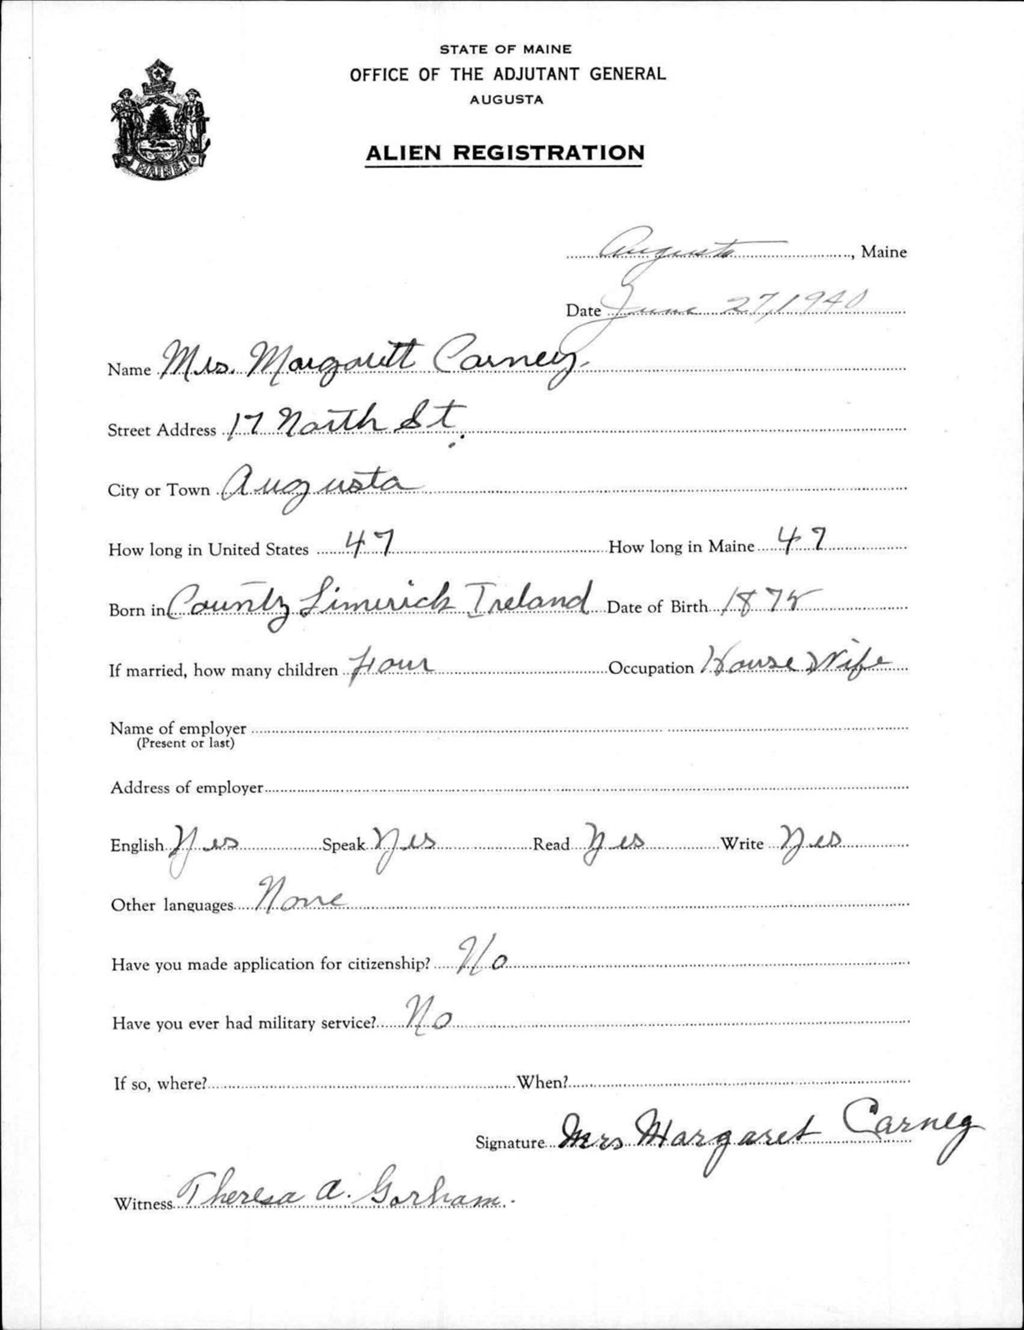 STATE OF MAINE
OFFICE OF THE ADJUTANT GENERAL
AUGUSTA
ALIEN REGISTRATION
MAINE
Augusta, Maine
Date June 27, 1940
Name Mrs. Margarett Carney.
Street Address 17 North St.
City or Town Augusta
How long in United States 47 How long in Maine 47
Born in County Limerick Ireland Date of Birth 1878
If married, how many children four Occupation House Wife
Name of employer
(Present or last)
Address of employer
English Yes Speak Yes Read Yes Write Yes
Other languages None
Have you made application for citizenship? No
Have you ever had military service? No
If so, where? When?
Signature Mrs Margaret Carney
Witness Theresa A. Gorham.